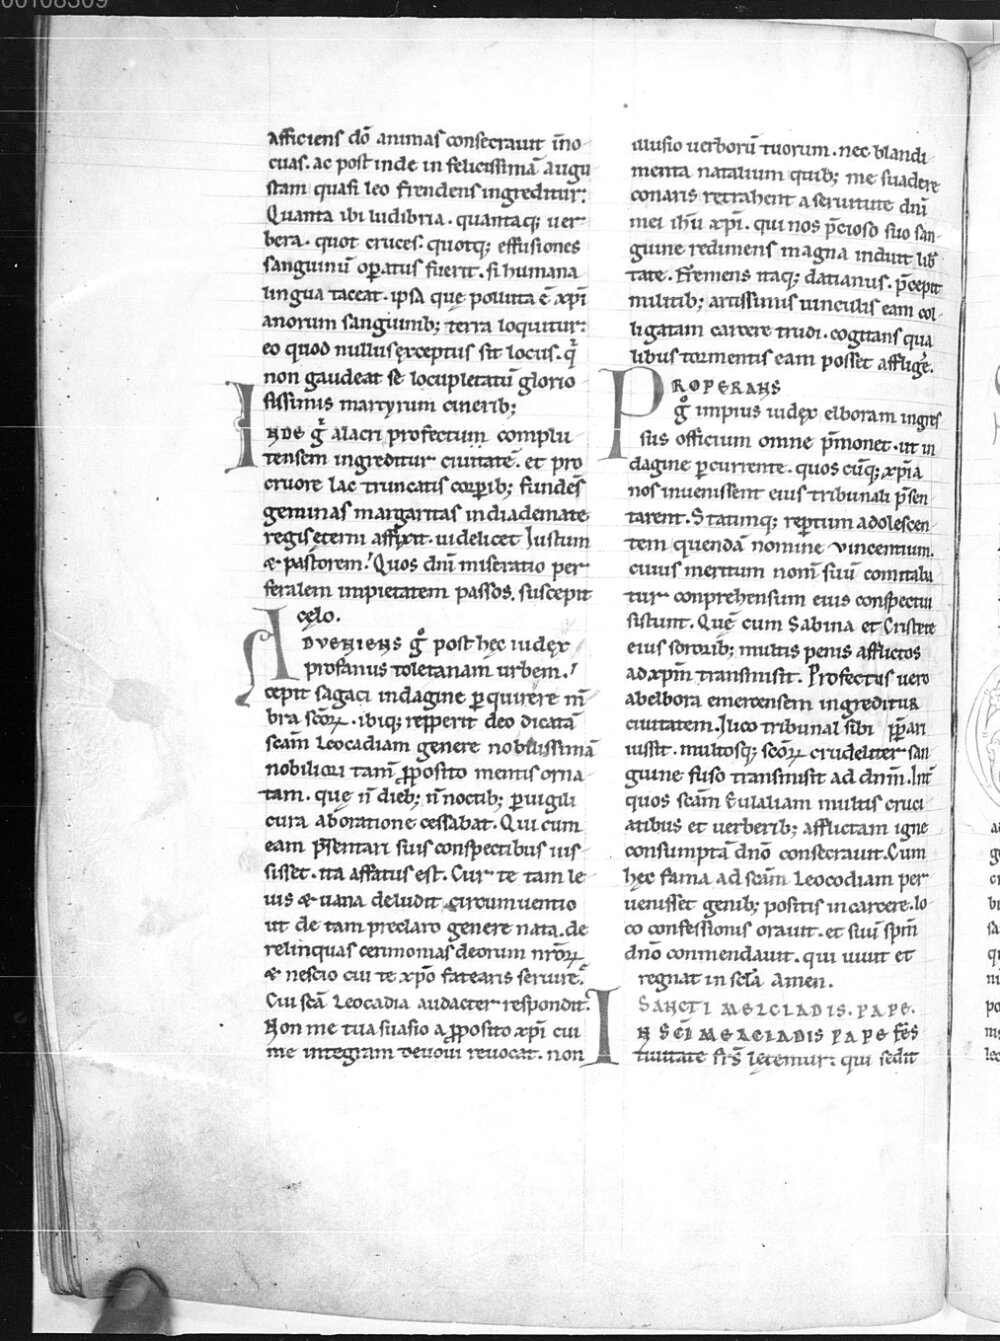 00108309
afficiens dō animas consecrauit īno
cuas. ac post inde in felicissimā augu
stam quasi leo frendens ingreditur:
Quanta ibi ludibria. quantaq; uer
bera. quot cruces. quotq; effusiones
sanguinū opatus fuerit. si humana
lingua taceat. ipsa que polluta ē xp̄i
anorum sanguinib; terra loquitur:
eo quod nullus exceptus sit locus. q̄
non gaudeat se locupletatū glorio
sissimis martyrum cinerib;
INDE gͦ alacri profectum complu
tensem ingreditur ciuitatē. et pro
cruore lac truncatis corporib; fundēs
geminas margaritas in diademate
regis eterni affixit. uidelicet Iustum
& pastorem. Quos dnī miseratio per
feralem impietatem passos. suscepit
celo.
ADVENIENS gͦ post hec iudex
profanus toletanam urbem.
cepit sagaci indagine pquirere mē
bra scōꝝ. ibiq; repperit deo dicatā
scam Leocadiam genere nobilissimā
nobiliori tam pposito mentis orna
tam. que n̄ dieb; n̄ noctib; puigili
cura ab oratione cessabat. Qui cum
eam p̄sentari suis conspectibus ius
sisset. ita affatus est. Cur te tam le
uis & uana deludit circumuentio
ut de tam preclaro genere nata. de
relinquas cerimonias deorum nr̄oꝝ
& nescio cui te xp̄o fatearis seruire.
Cui scā Leocadia audacter respondit.
Non me tua suasio a pposito xp̄i cui
me integram deuoui reuocat. non
illusio uerborū tuorum. nec blandi
menta natalium quib; me suadere
conaris retrahent a seruitute dnī
mei ihū xp̄i. qui nos p̄cioso suo san
guine redimens magna induit lib̄
tate. Fremens itaq; datianus. p̄cepit
militib; artissimis uinculis eam col
ligatam carcere trudi. cogitans qua
libus tormentis eam posset affligē.
PROPERANS
gͦ impius iudex elboram ingres
sus officium omne p̄monet. ut in
dagine pcurrente. quos cūq; xp̄ia
nos inuenissent eius tribunali p̄sen
tarent. Statimq; reptum adolescen
tem quendā nomine vincentium.
cuius meritum nomē suū comitaba
tur conprehensum eius conspectui
sistunt. Quē cum Sabina et Cristete
eius sororib; multis penis afflictos
ad xp̄m transmisit. Profectus uero
ab elbora emeritensem ingreditur
ciuitatem. Iuco tribunal sibi ppari
iussit. multosq; scōꝝ crudeliter san
guine fuso transmisit ad dnm̄. Int̄
quos scam Eulaliam multis cruci
atibus et uerberib; afflictam igne
consumptā dnō consecrauit. Cum
hec fama ad scām Leocodiam per
uenisset genib; positis in carcere. lo
co confessionis orauit. et suū sp̄m
dnō commendauit. qui uiuit et
regnat in sc̄la Amen.
SANCTI MELCIADIS. PAPE.
IN SCI MELCIADIS PAPE fēs
tiuitate fr̄s letemur: qui sedit